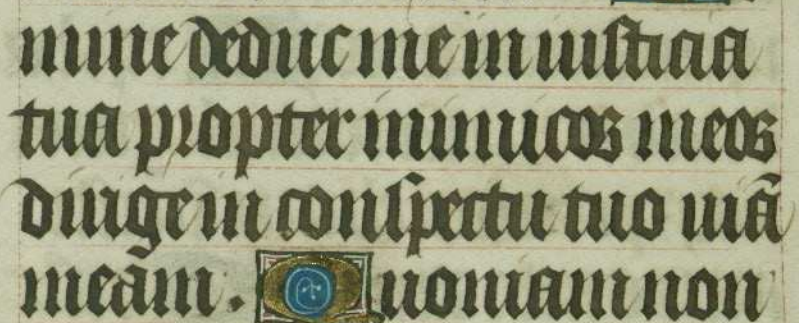 mine deduc me in iusticia
tua propter inimicos meos
dirige in conspectu tuo uiã
meam. Quoniam non